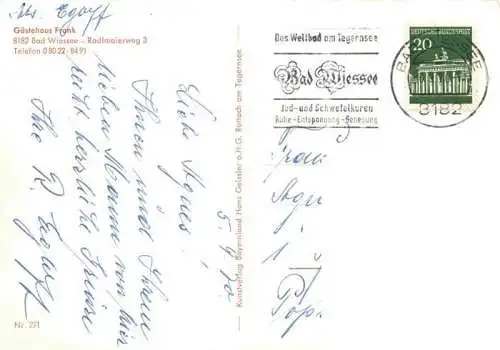 Abs. Egorff
Gästehaus Frank
8182 Bad Wiessee - Radlmaierweg 3
Telefon 0 80 22 - 84 91
5. 9. 70
Liebe Agnes!
Ihnen und Ihrem
lieben Mann von hier
recht herzliche Grüsse
Ihre R. Egorff
Nr. 271
Kunstverlag Bayernland Hans Geissler o.H.G. Rottach am Tegernsee
Das Weltbad am Tegernsee
Bad Wiessee
Jod- und Schwefelkuren
Ruhe - Entspannung - Genesung
DEUTSCHE BUNDESPOST
20
8182
Frau
Agn